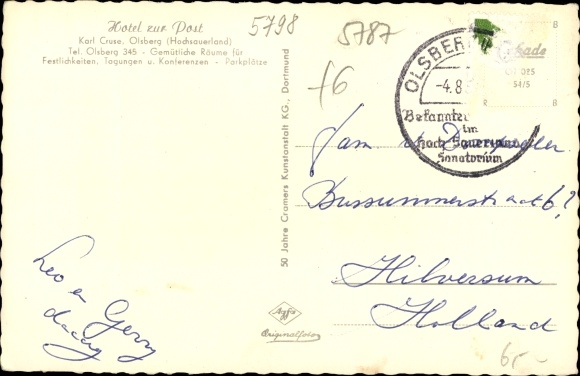 Hotel zur Post
Karl Cruse, Olsberg (Hochsauerland)
Tel. Olsberg 345 - Gemütliche Räume für
Festlichkeiten, Tagungen u. Konferenzen - Parkplätze
5798
5787
f6
OLSBERG
-4.8
Bekannter
im
Sanatorium
54/5
Fam.
Bussummerstraat 6?
Hilversum
Holland
Leo en Gerry
50 Jahre Cramers Kunstanstalt KG., Dortmund
Agfa
Originalfoto
6,-